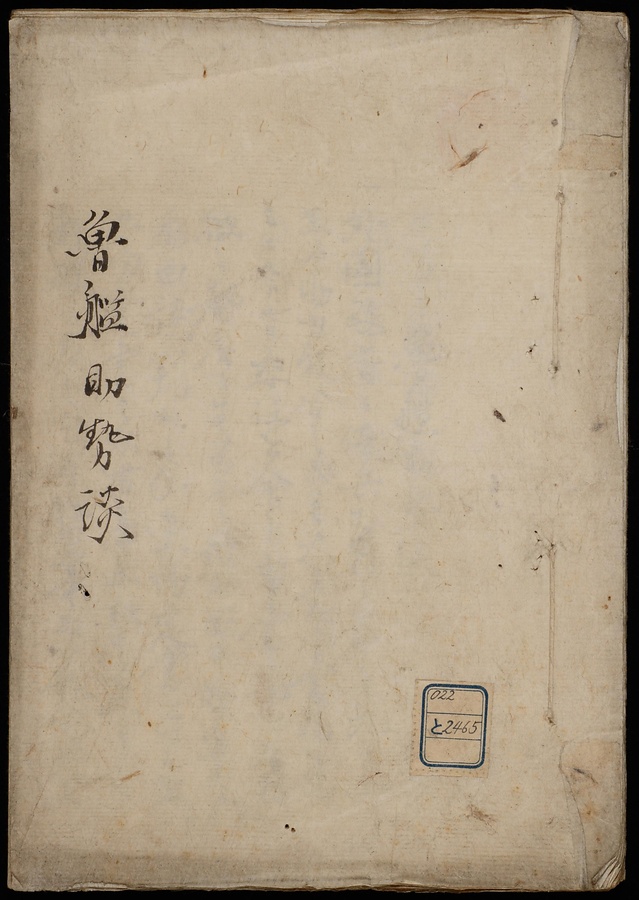 魯艦助勢談
022
と2465